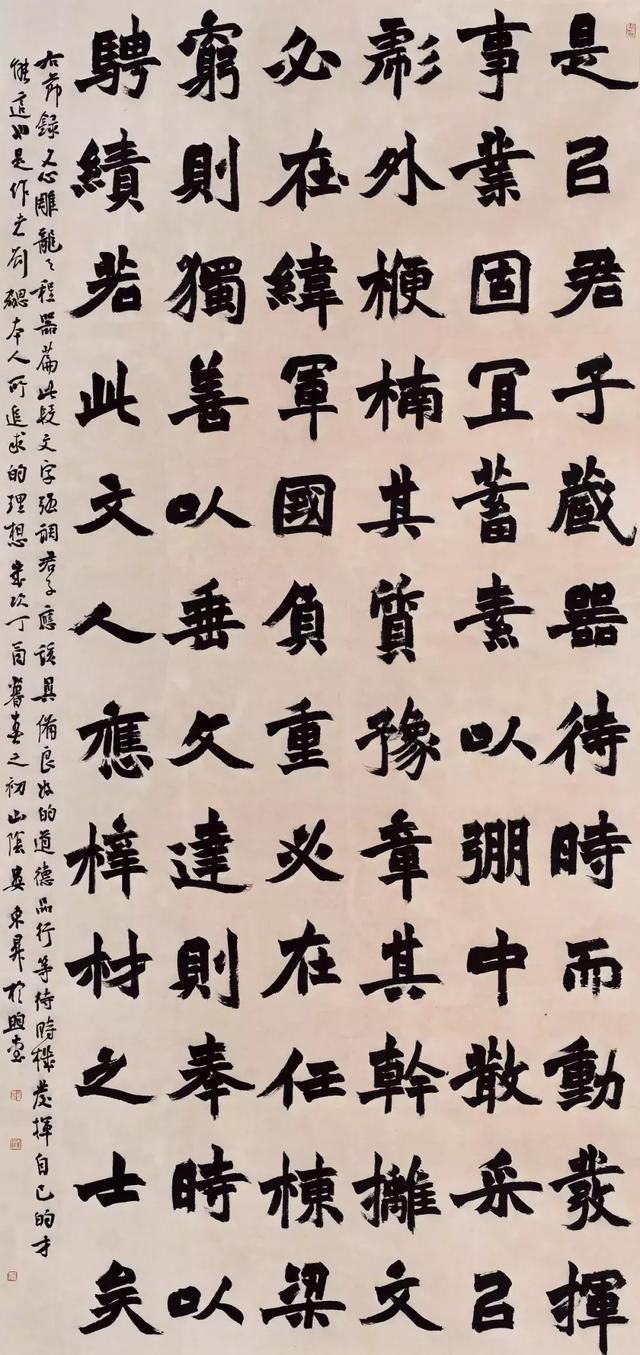 是已君子藏器待時而動發揮
事業固宜蓄素以弸中散采已
彪外楩楠其質豫章其幹攡文
必在緯軍國負重必在任棟梁
窮則獨善以垂文達則奉時以
騁績若此文人應梓材之士矣
右節錄文心雕龍之程器篇此段文字強調君子應該具備良好的道德品行等待時機發揮自己的才
能這也是作者劉勰本人所追求的理想歲次丁酉暮春之初山陰吳東昇於